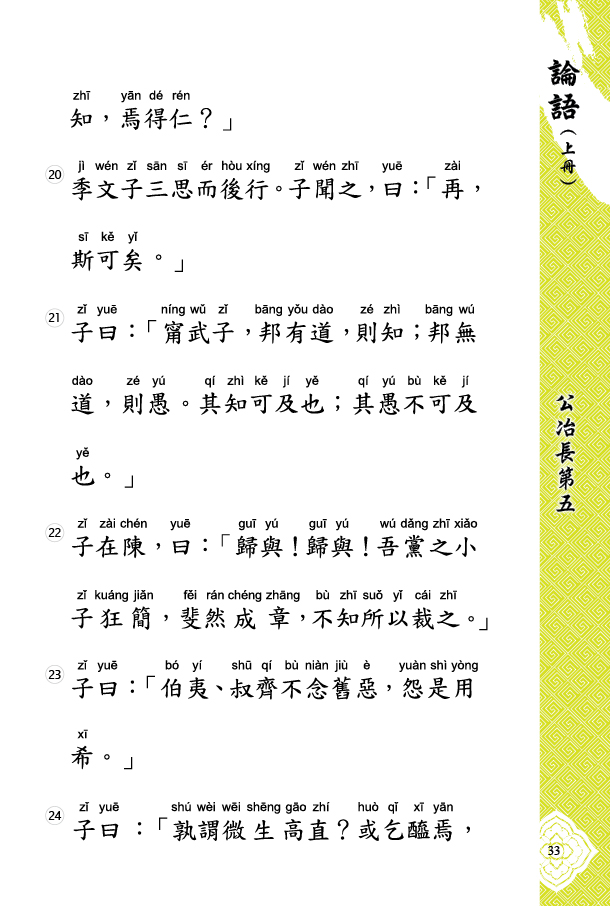 zhī yān dé rén
知，焉得仁？」
jì wén zǐ sān sī ér hòu xíng zǐ wén zhī yuē zài
20 季文子三思而後行。子聞之，曰：「再，
sī kě yǐ
斯可矣。」
zǐ yuē níng wǔ zǐ bāng yǒu dào zé zhì bāng wú
21 子曰：「甯武子，邦有道，則知；邦無
dào zé yú qí zhì kě jí yě qí yú bù kě jí
道，則愚。其知可及也；其愚不可及
yě
也。」
zǐ zài chén yuē guī yú guī yú wú dǎng zhī xiǎo
22 子在陳，曰：「歸與！歸與！吾黨之小
zǐ kuáng jiǎn fěi rán chéng zhāng bù zhī suǒ yǐ cái zhī
子狂簡，斐然成章，不知所以裁之。」
zǐ yuē bó yí shū qí bù niàn jiù è yuàn shì yòng
23 子曰：「伯夷、叔齊不念舊惡，怨是用
xī
希。」
zǐ yuē shú wèi wēi shēng gāo zhí huò qǐ xī yān
24 子曰：「孰謂微生高直？或乞醯焉，
論語（上冊）
公冶長第五
33